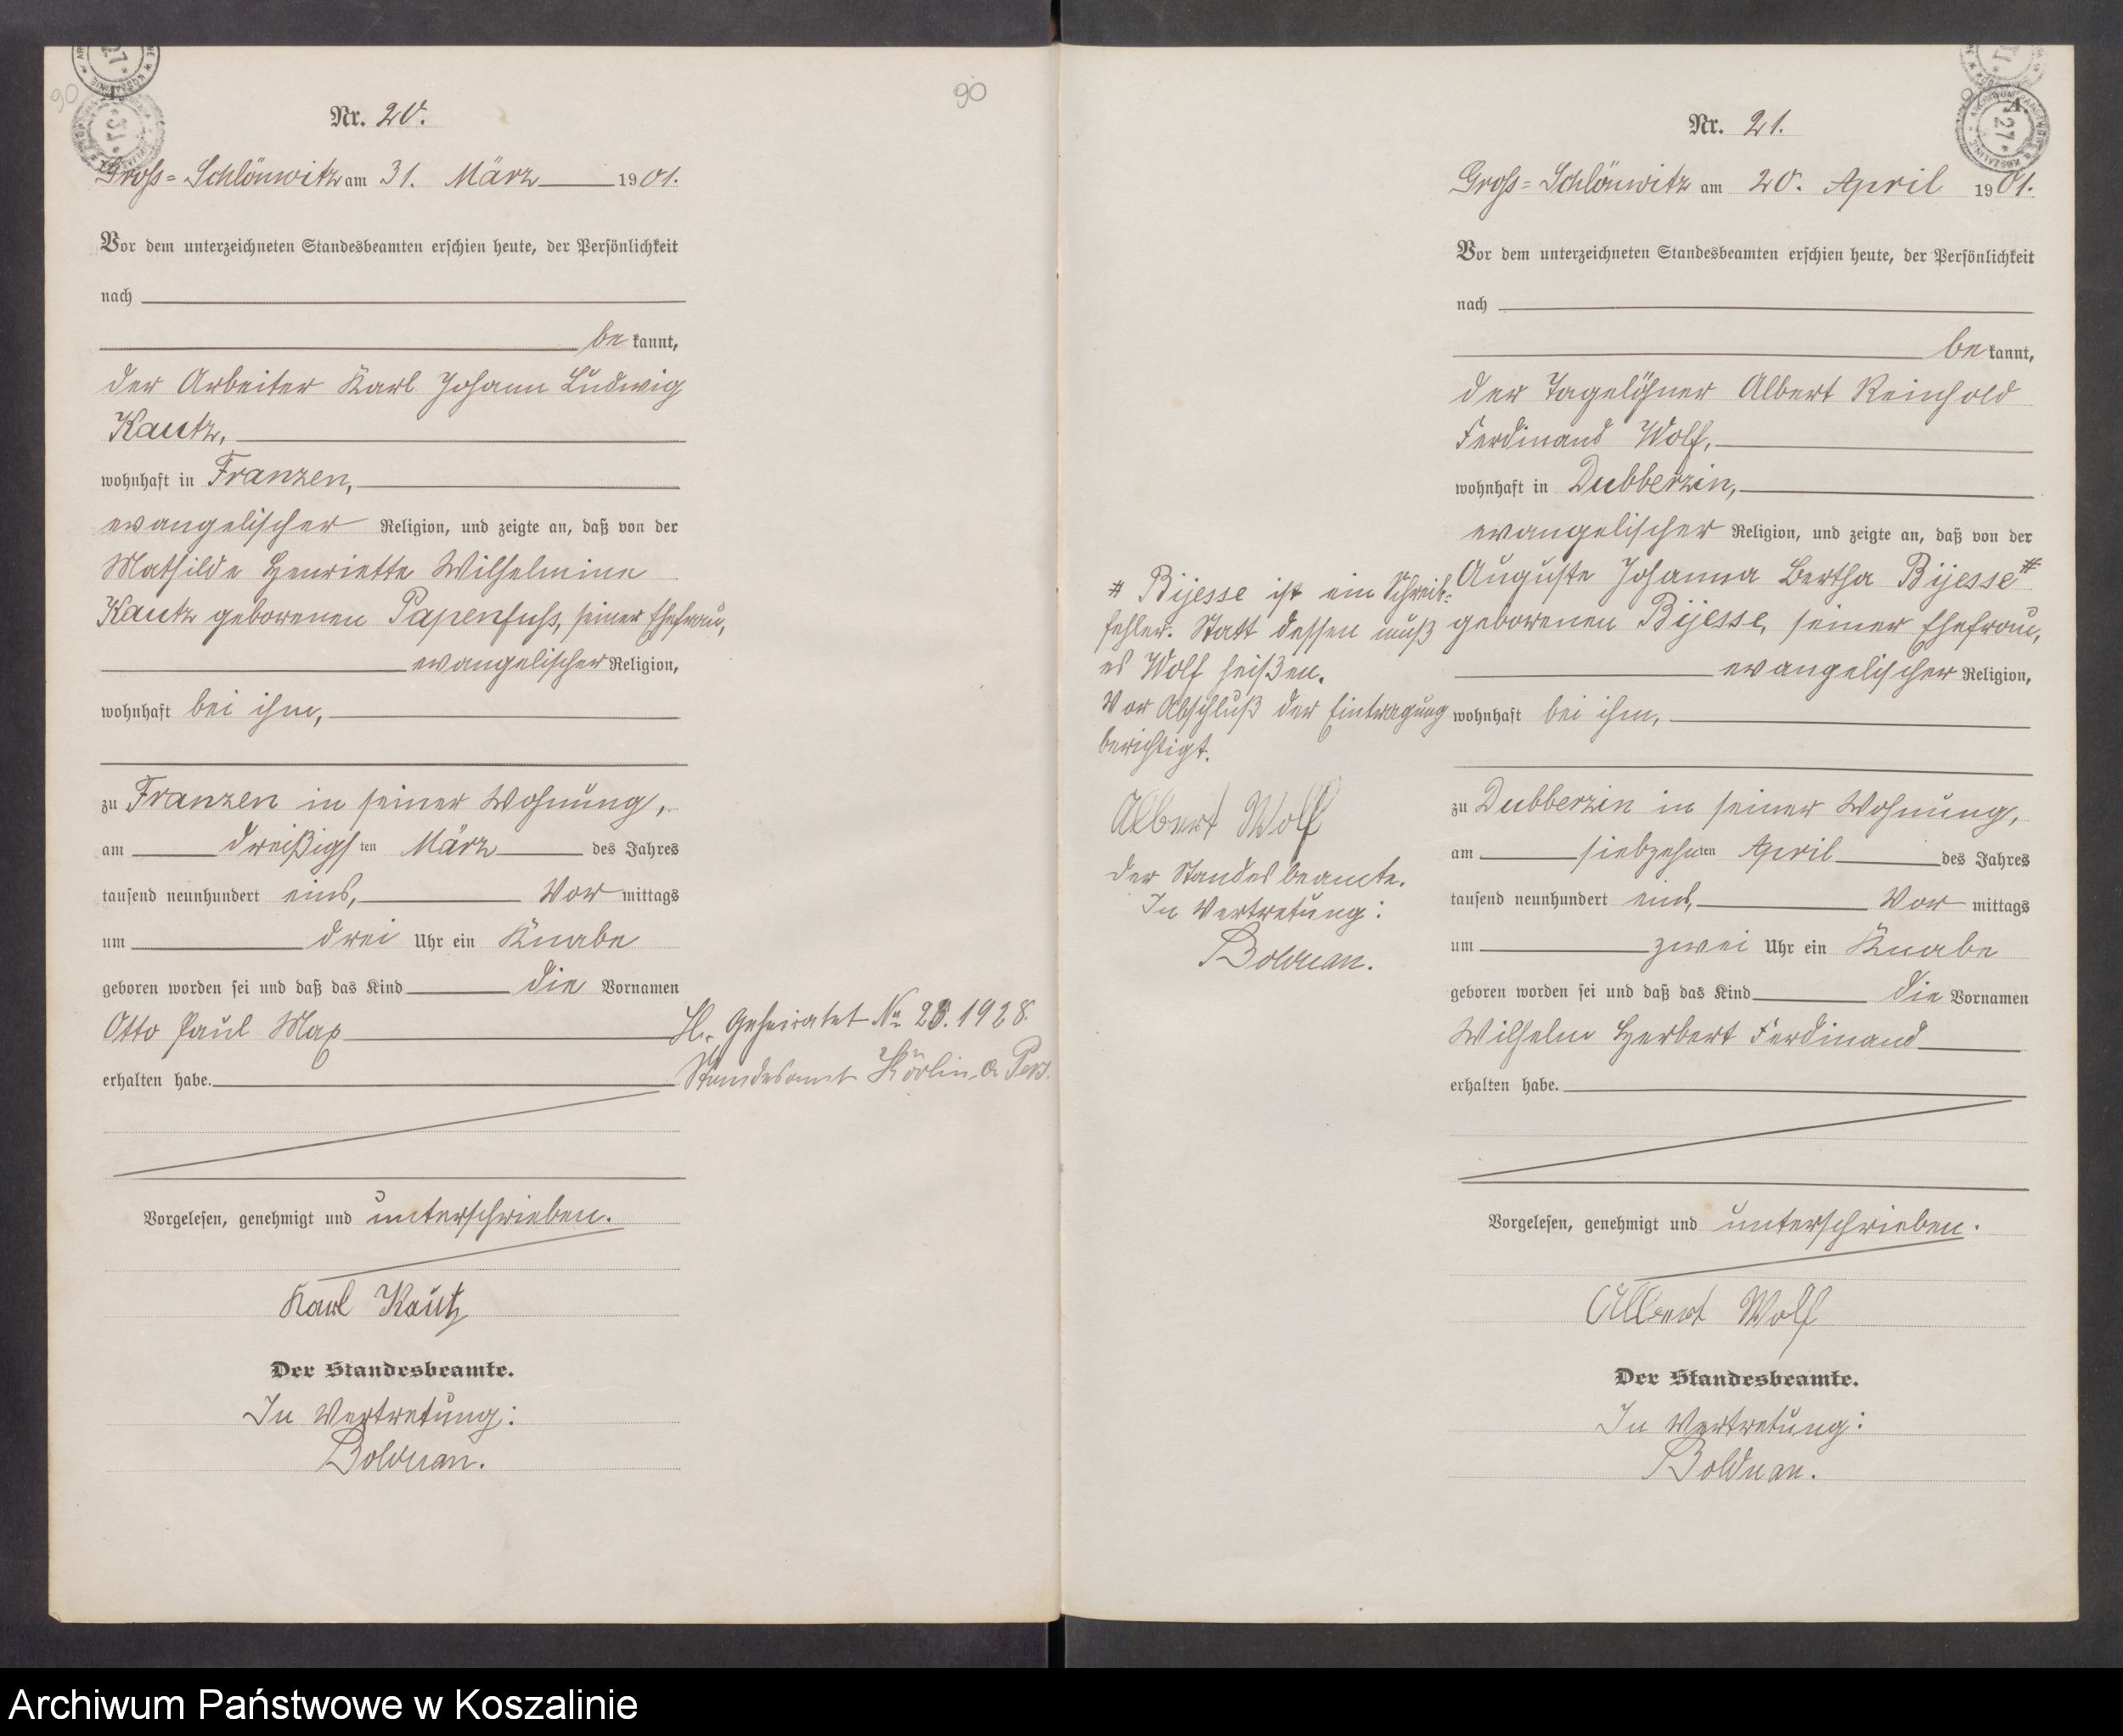 90
Nr. 20.
Gross-Schlönwitz am 31. März 1901.
Vor dem unterzeichneten Standesbeamten erschien heute, der Persönlichkeit
nach
be kannt,
der Arbeiter Karl Johann Ludwig
Kautz,
wohnhaft in Franzen,
evangelischer Religion, und zeigte an, daß von der
Mathilde Henriette Wilhelmine
Kautz geborenen Papenfuss, seiner Ehefrau,
evangelischer Religion,
wohnhaft bei ihm,
zu Franzen in seiner Wohnung,
am dreißigsten März des Jahres
tausend neunhundert eins, Vor mittags
um drei Uhr ein Knabe
geboren worden sei und daß das Kind die Vornamen
Otto Paul Max
erhalten habe.
Geheiratet No 23. 1928.
Standesamt Körlin a Pers.
Vorgelesen, genehmigt und unterschrieben.
Karl Kautz
Der Standesbeamte.
In Vertretung:
Bolduan.
90
Nr. 21.
Gross-Schlönwitz am 20. April 1901.
Vor dem unterzeichneten Standesbeamten erschien heute, der Persönlichkeit
nach
be kannt,
der Tagelöhner Albert Reinhold
Ferdinand Wolf,
wohnhaft in Dubberzin,
evangelischer Religion, und zeigte an, daß von der
Auguste Johanna Bertha Bijesse #
geborenen Bijesse, seiner Ehefrau,
evangelischer Religion,
wohnhaft bei ihm,
zu Dubberzin in seiner Wohnung,
am siebzehnten April des Jahres
tausend neunhundert eins, Vor mittags
um zwei Uhr ein Knabe
geboren worden sei und daß das Kind die Vornamen
Wilhelm Herbert Ferdinand
erhalten habe.
# Bijesse ist ein Schreib-
fehler. Statt dessen muß
es Wolf heißen.
Vor Abschluß der Eintragung
berichtigt.
Albert Wolf
Der Standesbeamte.
In Vertretung:
Bolduan.
Vorgelesen, genehmigt und unterschrieben.
Albert Wolf
Der Standesbeamte.
In Vertretung:
Bolduan.
Archiwum Państwowe w Koszalinie